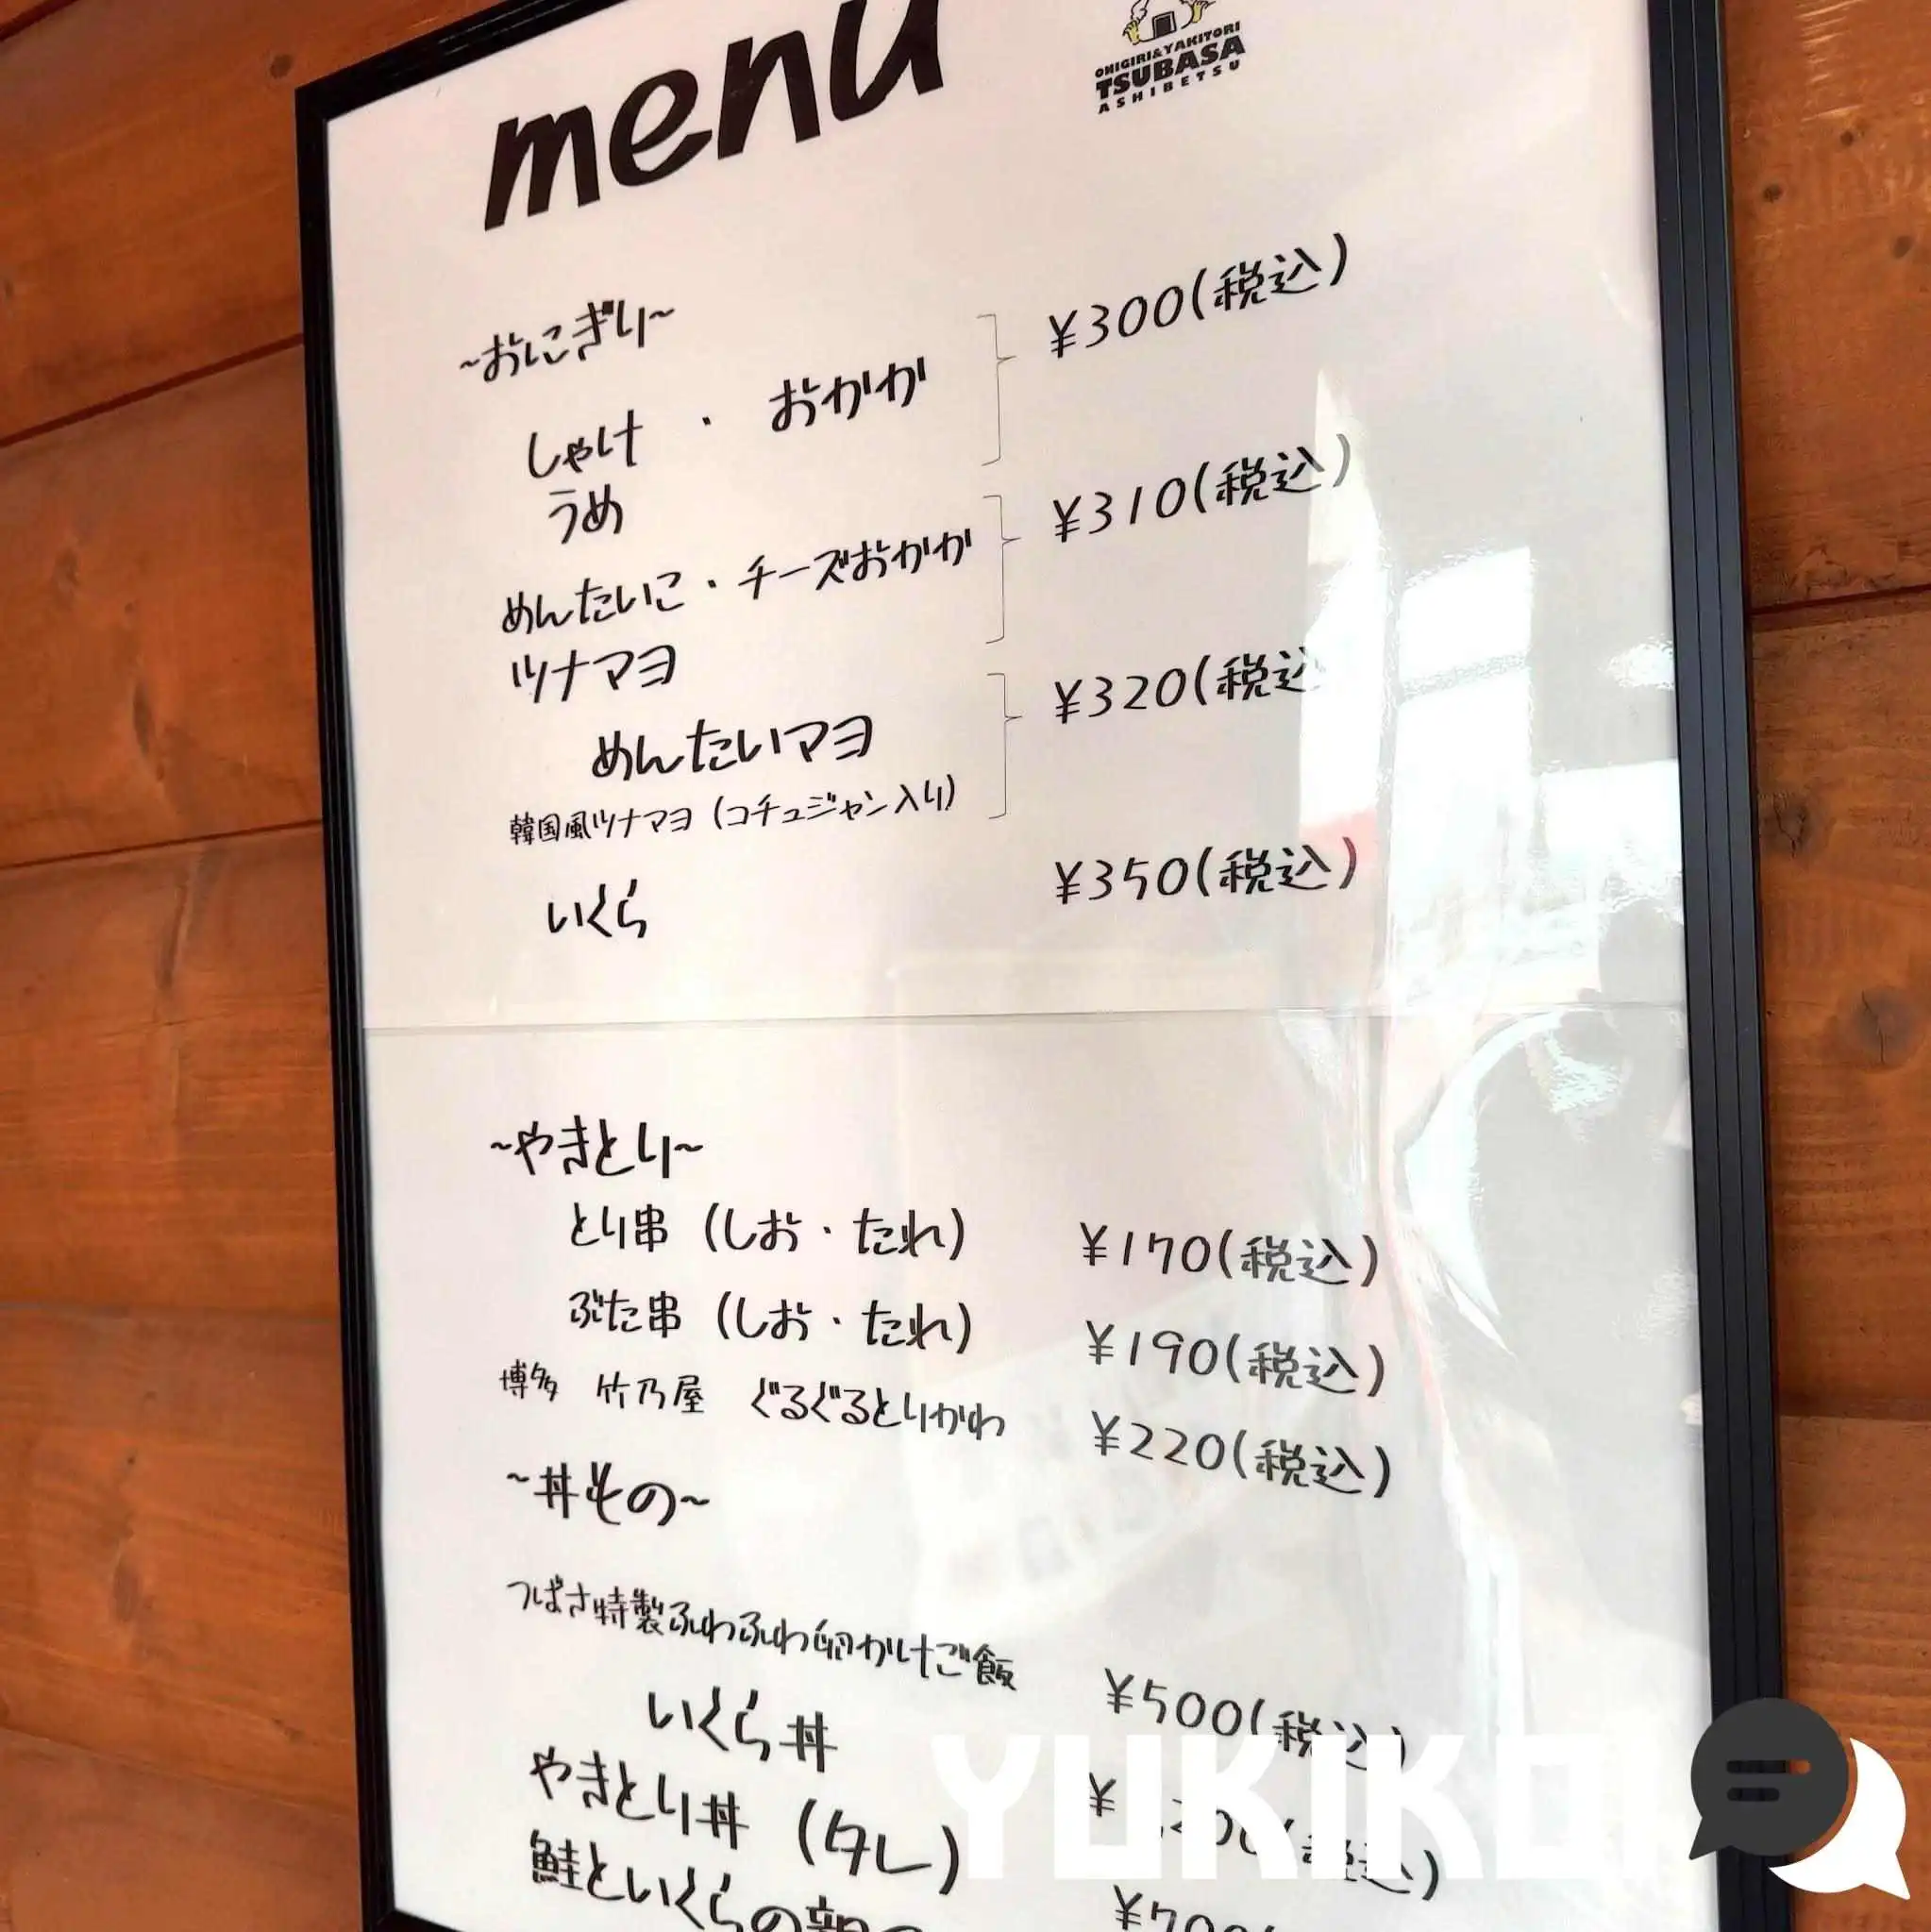 menu
ONIGIRI&YAKITORI
TSUBASA
ASHIBETSU
~おにぎり~
しゃけ ・ おかか ¥300(税込)
うめ
めんたいこ ・ チーズおかか ¥310(税込)
ツナマヨ
めんたいマヨ ¥320(税込
韓国風ツナマヨ (コチュジャン入り)
いくら ¥350(税込)
~やきとり~
とり串 (しお・たれ) ¥170(税込)
ぶた串 (しお・たれ) ¥190(税込)
博多 竹乃屋 ぐるぐるとりかわ ¥220(税込)
~丼もの~
つばさ特製ふわふわ卵かけごご飯 ¥500(税込)
いくら丼
やきとり丼 (タレ)
鮭といくらの親
YUKIKO